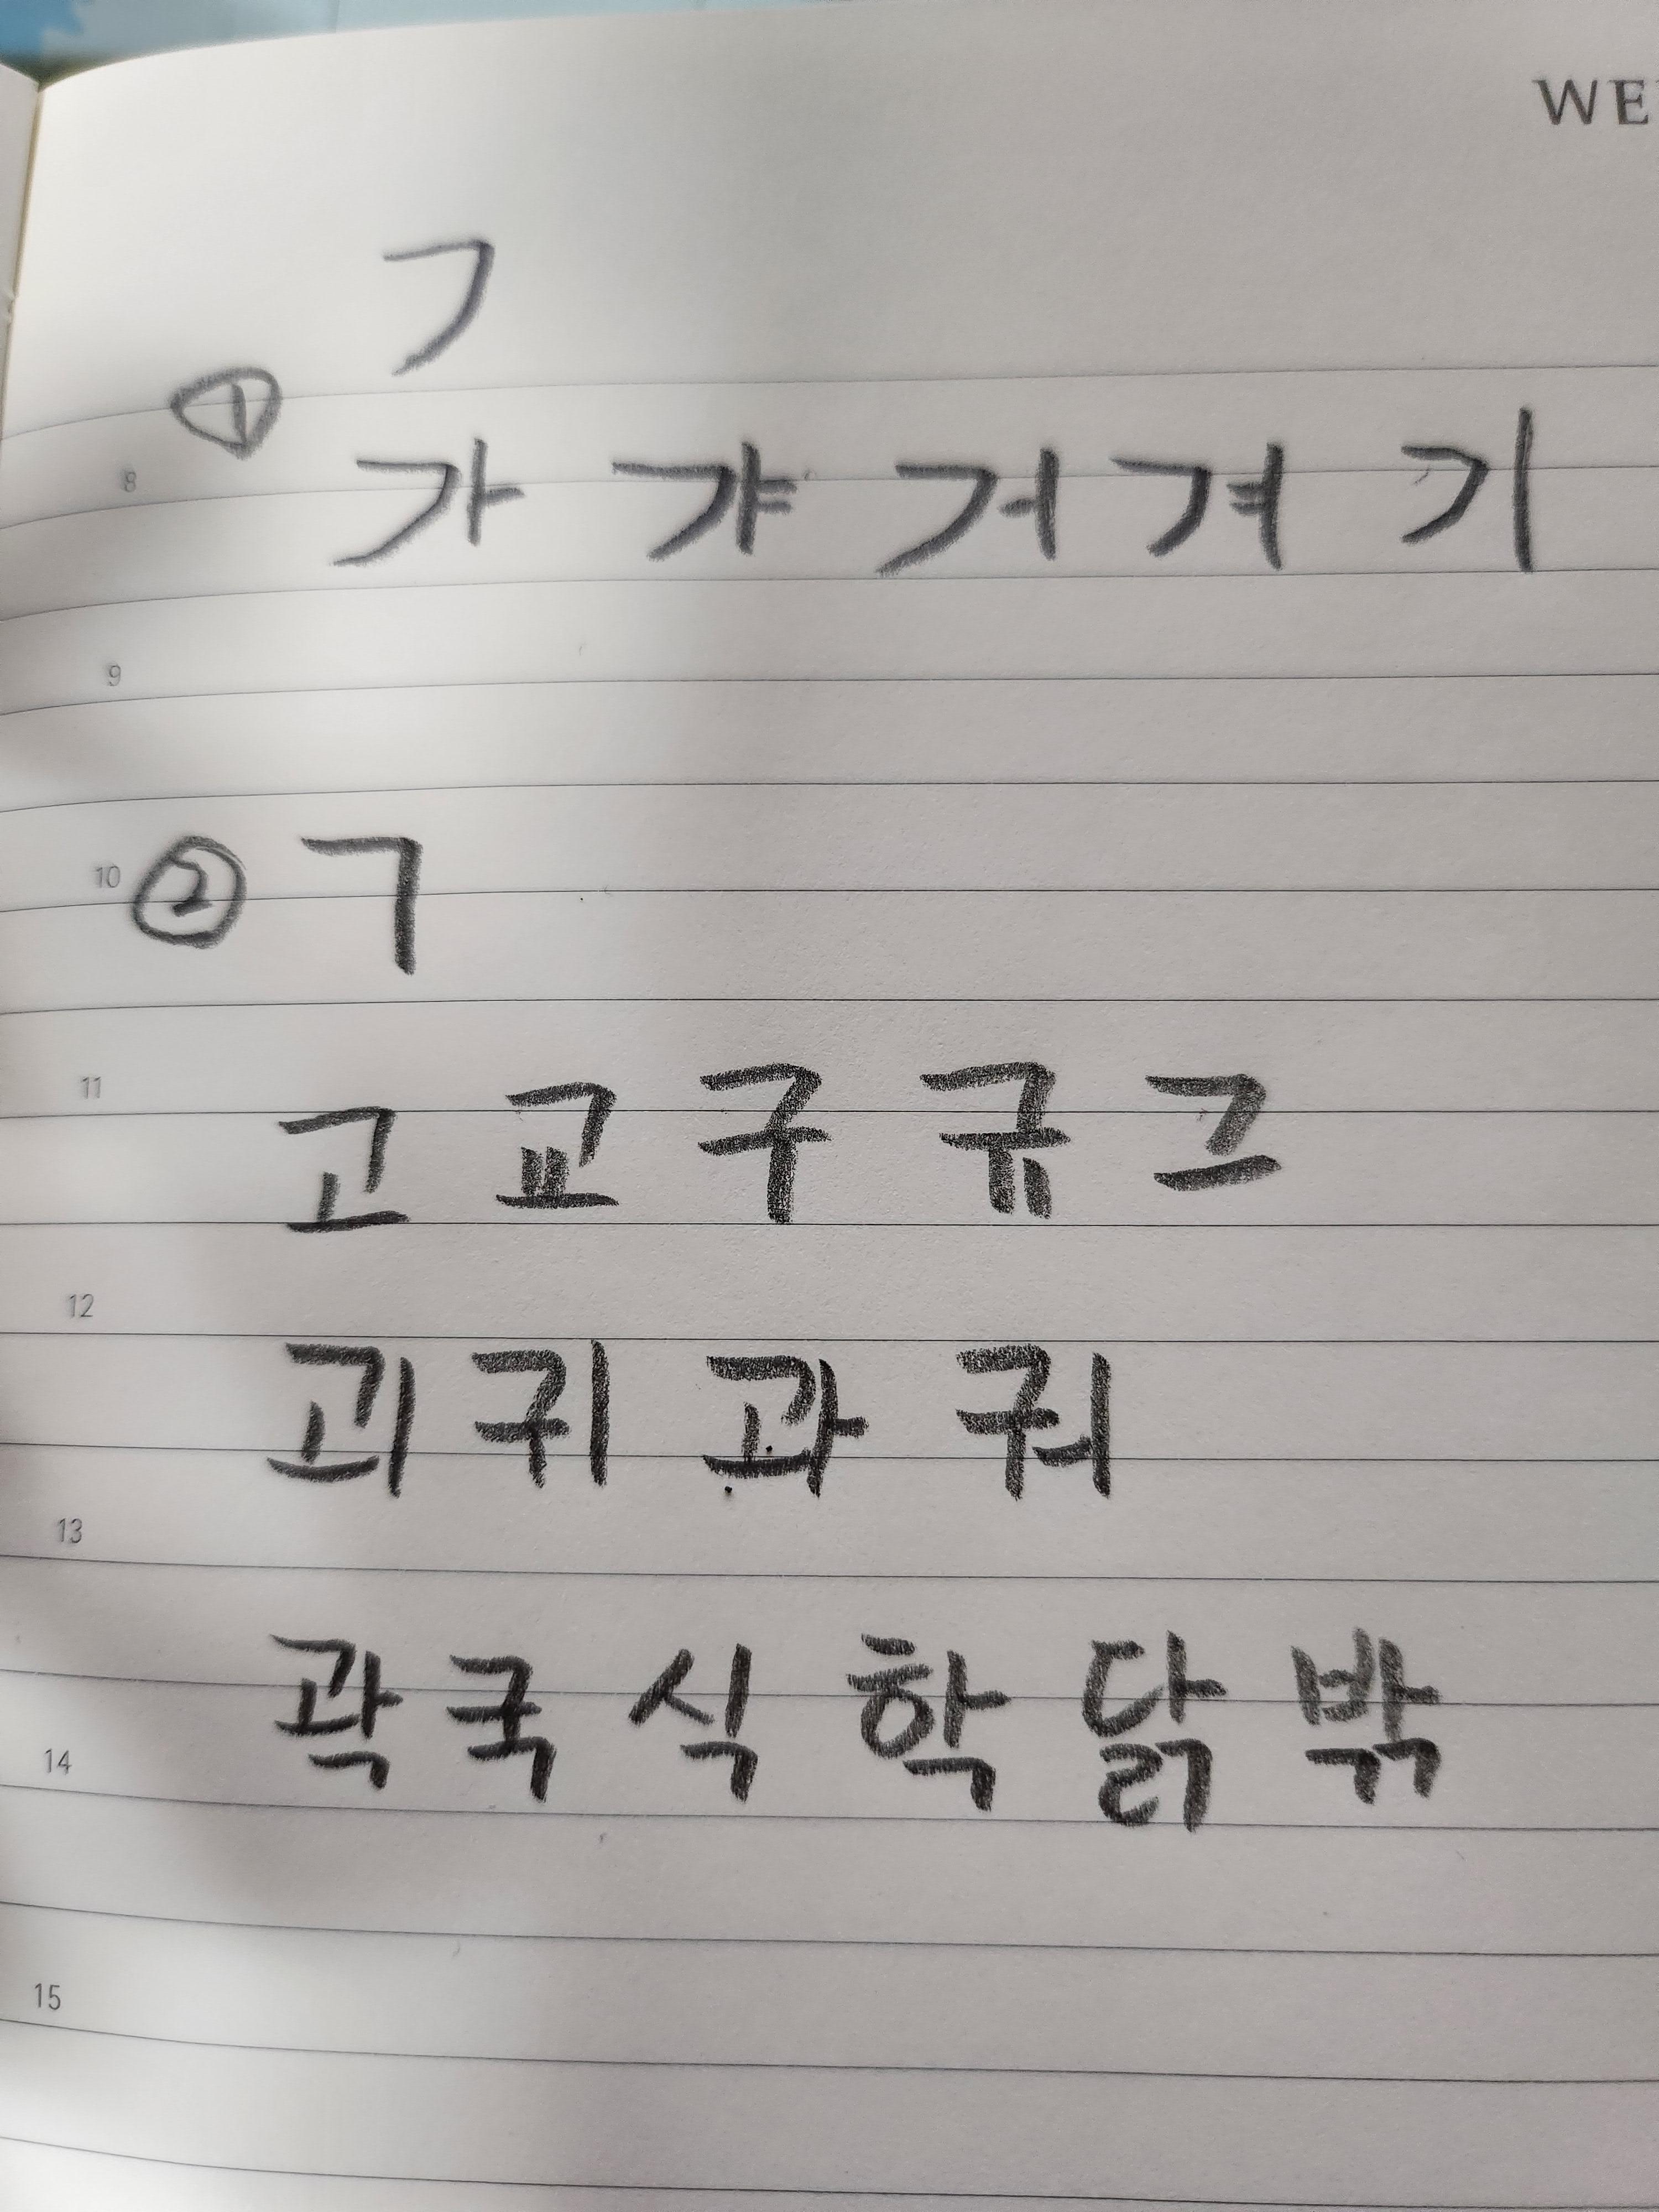 WE
ㄱ
①
8 가 갸 거 겨 기
9
10 ② ㄱ
11 고 교 구 규 그
12
괴 귀 과 궈
13
곽 국 식 학 닭 밖
14
15